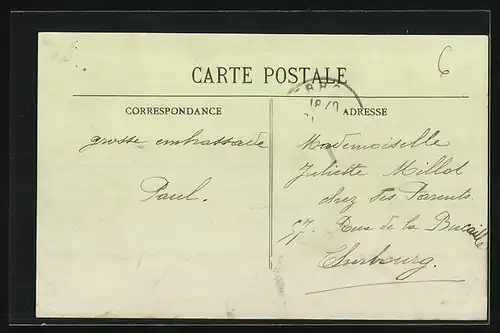 6
CARTE POSTALE
CORRESPONDANCE
ADRESSE
grosse embrassade
Paul.
Mademoiselle
Juliette Millot
chez ses Parents.
57. Rue de la Bucaille
Cherbourg.